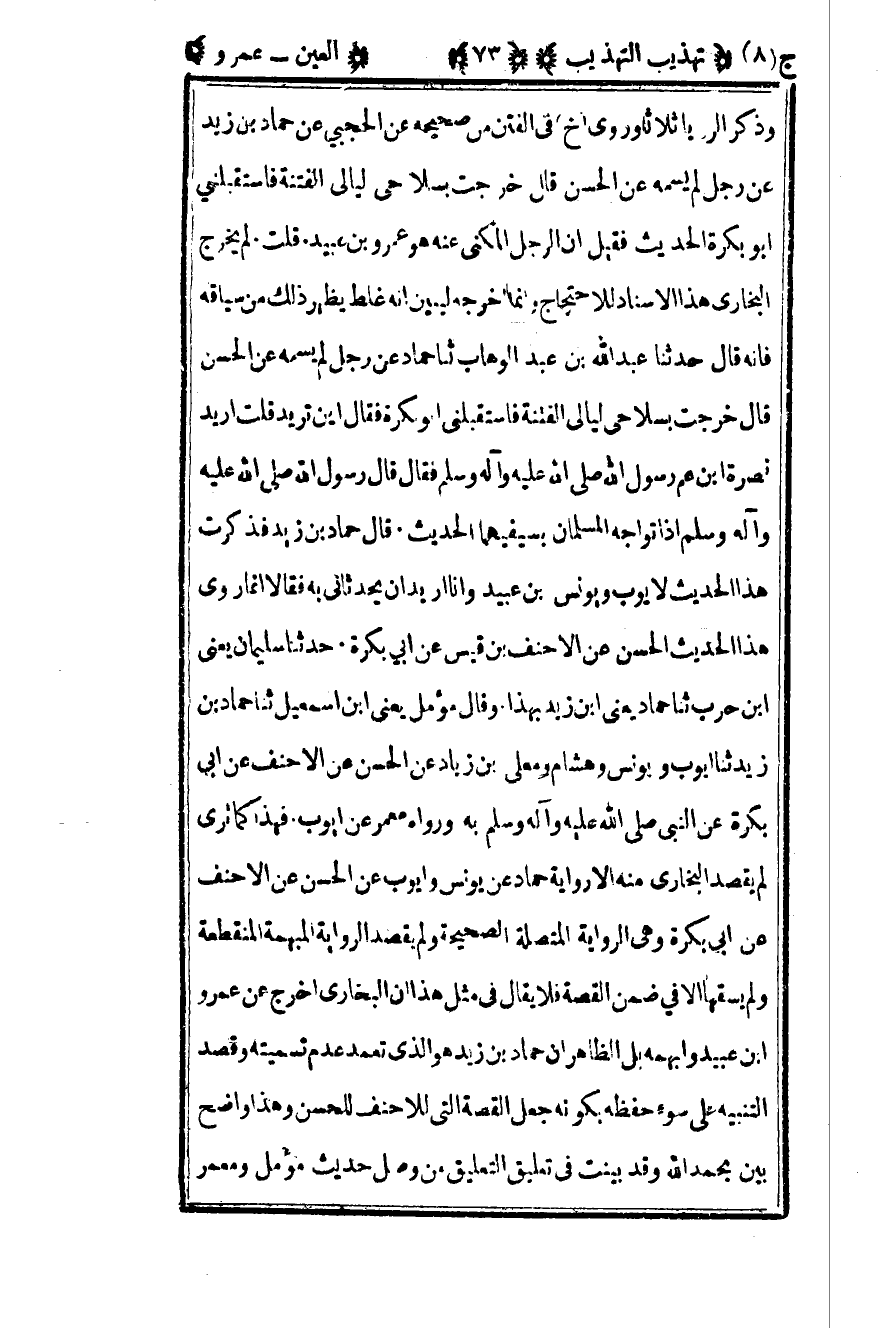 ج (٨) ﴿ تهذيب التهذيب ﴾ ﴿ ٧٣ ﴾ ﴿ العين ـ عمرو ﴾
وذكر الرؤيا ثلاثا وروى 'خ' فى الفتن من صحيحه عن الحجبي عن حماد بن زيد
عن رجل لم يسمه عن الحسن قال خرجت بسلاحى ليالى الفتنة فاستقبلني
ابو بكرة الحديث فقيل ان الرجل المكنى عنه هو عمرو بن عبيد . قلت . لم يخرج
البخارى هذا الاسناد للاحتجاج وانما اخرجه ليبين انه غلط يظهر ذلك من سياقه
فانه قال حدثنا عبد الله بن عبد الوهاب ثنا حماد عن رجل لم يسمه عن الحسن
قال خرجت بسلاحى ليالى الفتنة فاستقبلنى ابو بكرة فقال اين تريد قلت اريد
نصرة ابن عم رسول الله صلى الله عليه وآله وسلم فقال قال رسول الله صلى الله عليه
وآله وسلم اذا تواجه المسلمان بسيفيهما الحديث . قال حماد بن زيد فذكرت
هذا الحديث لايوب ويونس بن عبيد وانا اريد ان يحدثانى به فقالا انما روى
هذا الحديث الحسن عن الاحنف بن قيس عن ابي بكرة . حدثنا سليمان يعنى
ابن حرب ثنا حماد يعنى ابن زيد بهذا . وقال مؤمل يعنى ابن اسمعيل ثنا حماد بن
زيد ثنا ايوب ويونس وهشام ومعلى بن زياد عن الحسن عن الاحنف عن ابى
بكرة عن النبى صلى الله عليه وآله وسلم به ورواه معمر عن ايوب . فهذا كما ترى
لم يقصد البخارى منه الا رواية حماد عن يونس وايوب عن الحسن عن الاحنف
عن ابي بكرة وهى الرواية المتصلة الصحيحة ولم يقصد الرواية المبهمة المنقطعة
ولم يسقها الا في ضمن القصة فلا يقال فى مثل هذا ان البخارى اخرج عن عمرو
ابن عبيد وابهمه بل الظاهر ان حماد بن زيد هو الذى تعمد عدم تسميته وقصد
التنبيه على سوء حفظه بكونه جعل القصة التى للاحنف للحسن وهذا واضح
بين بحمد الله وقد بينت فى تعليق التعليق من وصل حديث مؤمل ومعمر